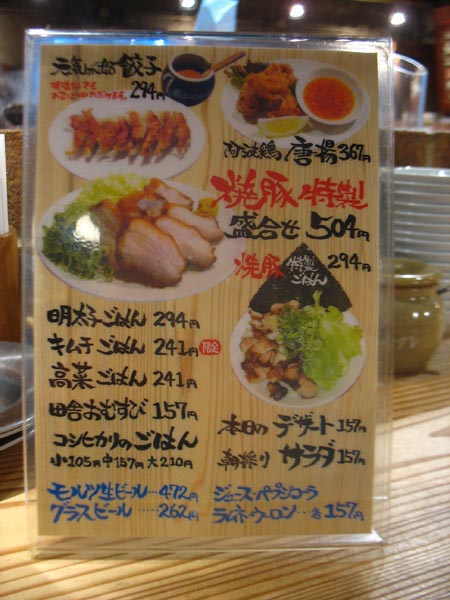 元気が出る 餃子
294円
阿波鶏 唐揚 367円
焼豚 特製
盛合せ 504円
焼豚 特製ごはん 294円
明太子ごはん 294円
キムチごはん 241円 限定
高菜ごはん 241円
田舎おむすび 157円
コシヒカリのごはん
小105円 中157円 大210円
本日の デザート 157円
朝採り サラダ 157円
モルツ生ビール…472円
グラスビール……262円
ジュース・ペプシコーラ
ラムネ・ウーロン…各157円